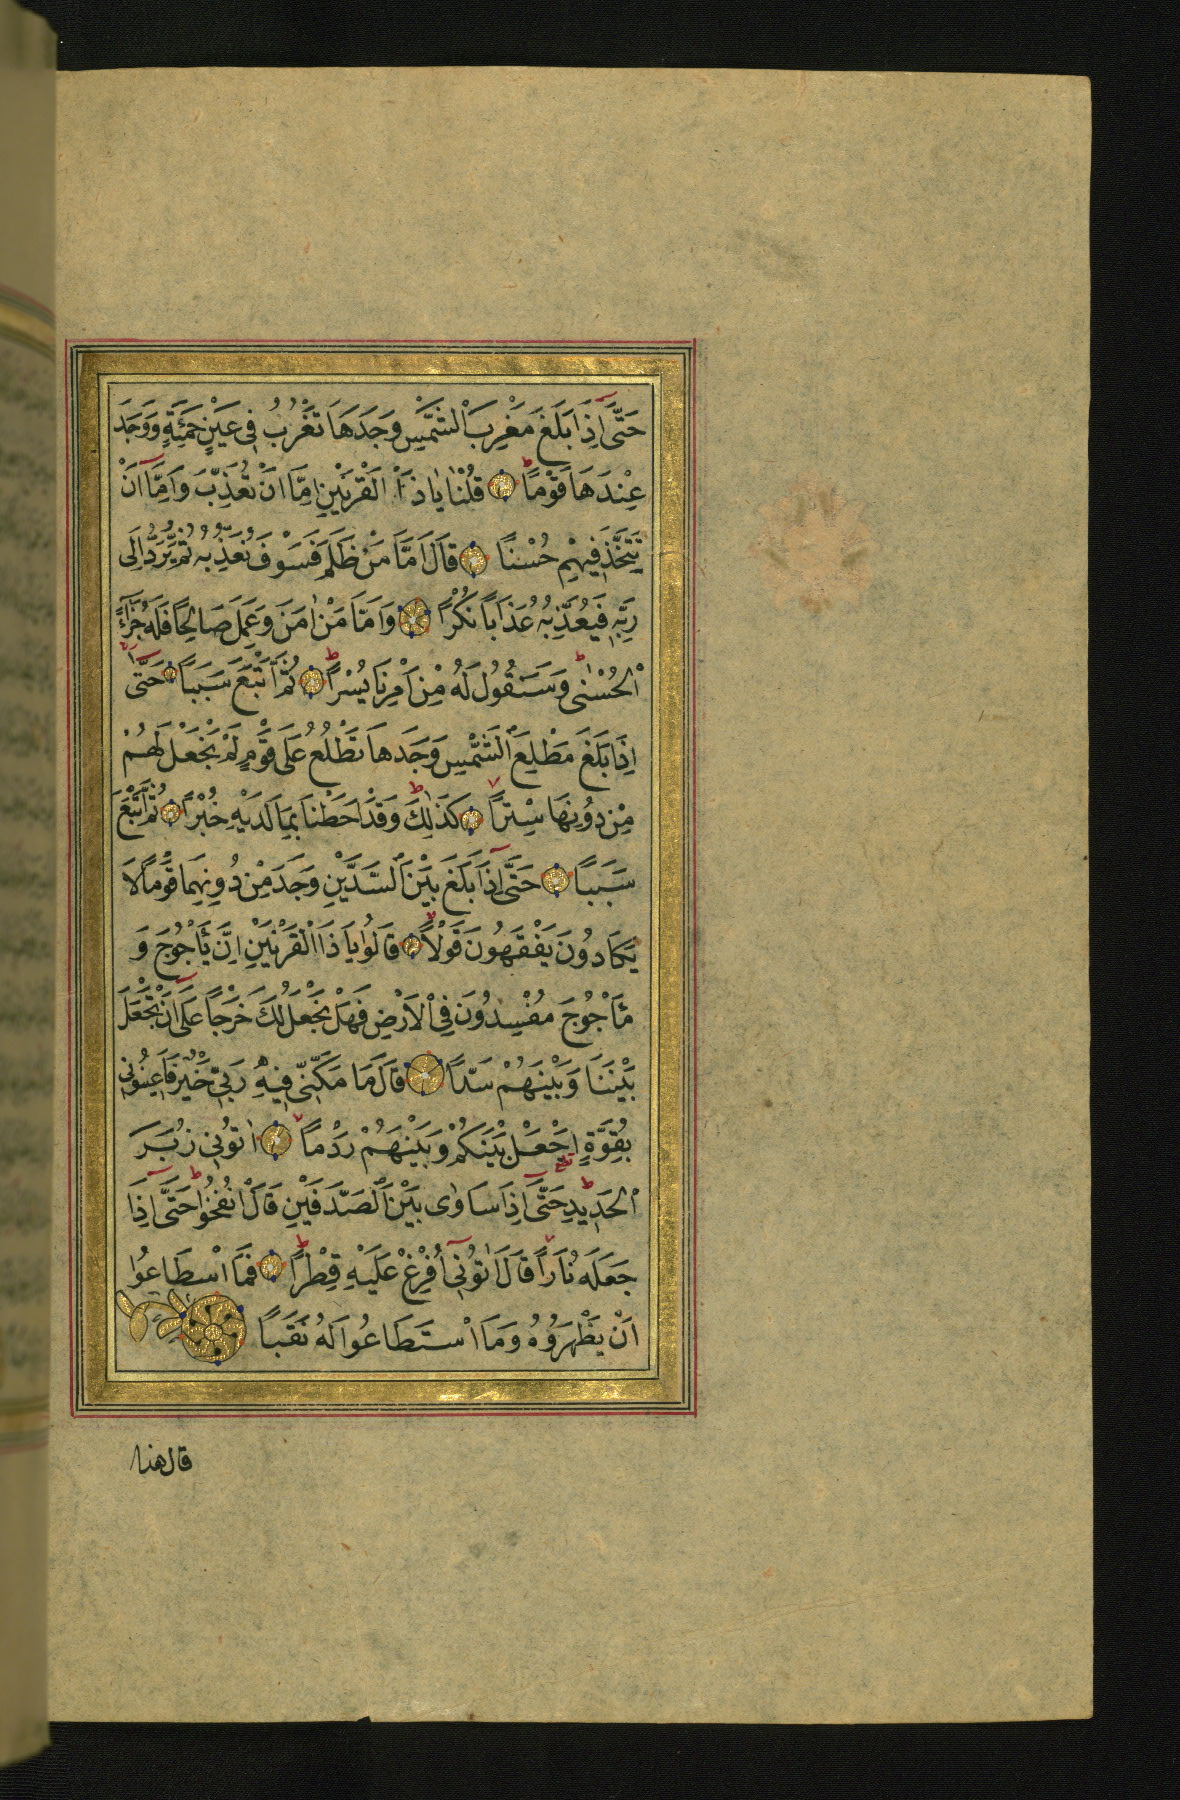 حَتَّى اِذَا بَلَغَ مَغْرِبَ الشَّمْسِ وَجَدَهَا تَغْرُبُ فِى عَيْنٍ حَمِئَةٍ وَوَجَدَ
عِنْدَهَا قَوْمًا قُلْنَا يَا ذَا الْقَرْنَيْنِ اِمَّا اَنْ تُعَذِّبَ وَاِمَّا اَنْ
تَتَّخِذَ فِيهِمْ حُسْنًا قَالَ اَمَّا مَنْ ظَلَمَ فَسَوْفَ نُعَذِّبُهُ ثُمَّ يُرَدُّ اِلَى
رَبِّهِ فَيُعَذِّبُهُ عَذَابًا نُكْرًا وَاَمَّا مَنْ اٰمَنَ وَعَمِلَ صَالِحًا فَلَهُ جَزَاءً
الْحُسْنٰى وَسَنَقُولُ لَهُ مِنْ اَمْرِنَا يُسْرًا ثُمَّ اَتْبَعَ سَبَبًا حَتَّى
اِذَا بَلَغَ مَطْلِعَ الشَّمْسِ وَجَدَهَا تَطْلُعُ عَلَى قَوْمٍ لَمْ نَجْعَلْ لَهُمْ
مِنْ دُونِهَا سِتْرًا كَذٰلِكَ وَقَدْ اَحَطْنَا بِمَا لَدَيْهِ خُبْرًا ثُمَّ اَتْبَعَ
سَبَبًا حَتَّى اِذَا بَلَغَ بَيْنَ السَّدَّيْنِ وَجَدَ مِنْ دُونِهِمَا قَوْمًا لَا
يَكَادُونَ يَفْقَهُونَ قَوْلًا قَالُوا يَا ذَا الْقَرْنَيْنِ اِنَّ يَأْجُوجَ وَ
مَأْجُوجَ مُفْسِدُونَ فِى الْاَرْضِ فَهَلْ نَجْعَلُ لَكَ خَرْجًا عَلَى اَنْ تَجْعَلَ
بَيْنَنَا وَبَيْنَهُمْ سَدًّا قَالَ مَا مَكَّنِّى فِيهِ رَبِّى خَيْرٌ فَاَعِينُونِى
بِقُوَّةٍ اَجْعَلْ بَيْنَكُمْ وَبَيْنَهُمْ رَدْمًا اٰتُونِى زُبَرَ
الْحَدِيدِ حَتَّى اِذَا سَاوٰى بَيْنَ الصَّدَفَيْنِ قَالَ انْفُخُوا حَتَّى اِذَا
جَعَلَهُ نَارًا قَالَ اٰتُونِى اُفْرِغْ عَلَيْهِ قِطْرًا فَمَا اسْطَاعُوا
اَنْ يَظْهَرُوهُ وَمَا اسْتَطَاعُوا لَهُ نَقْبًا
قال هذا